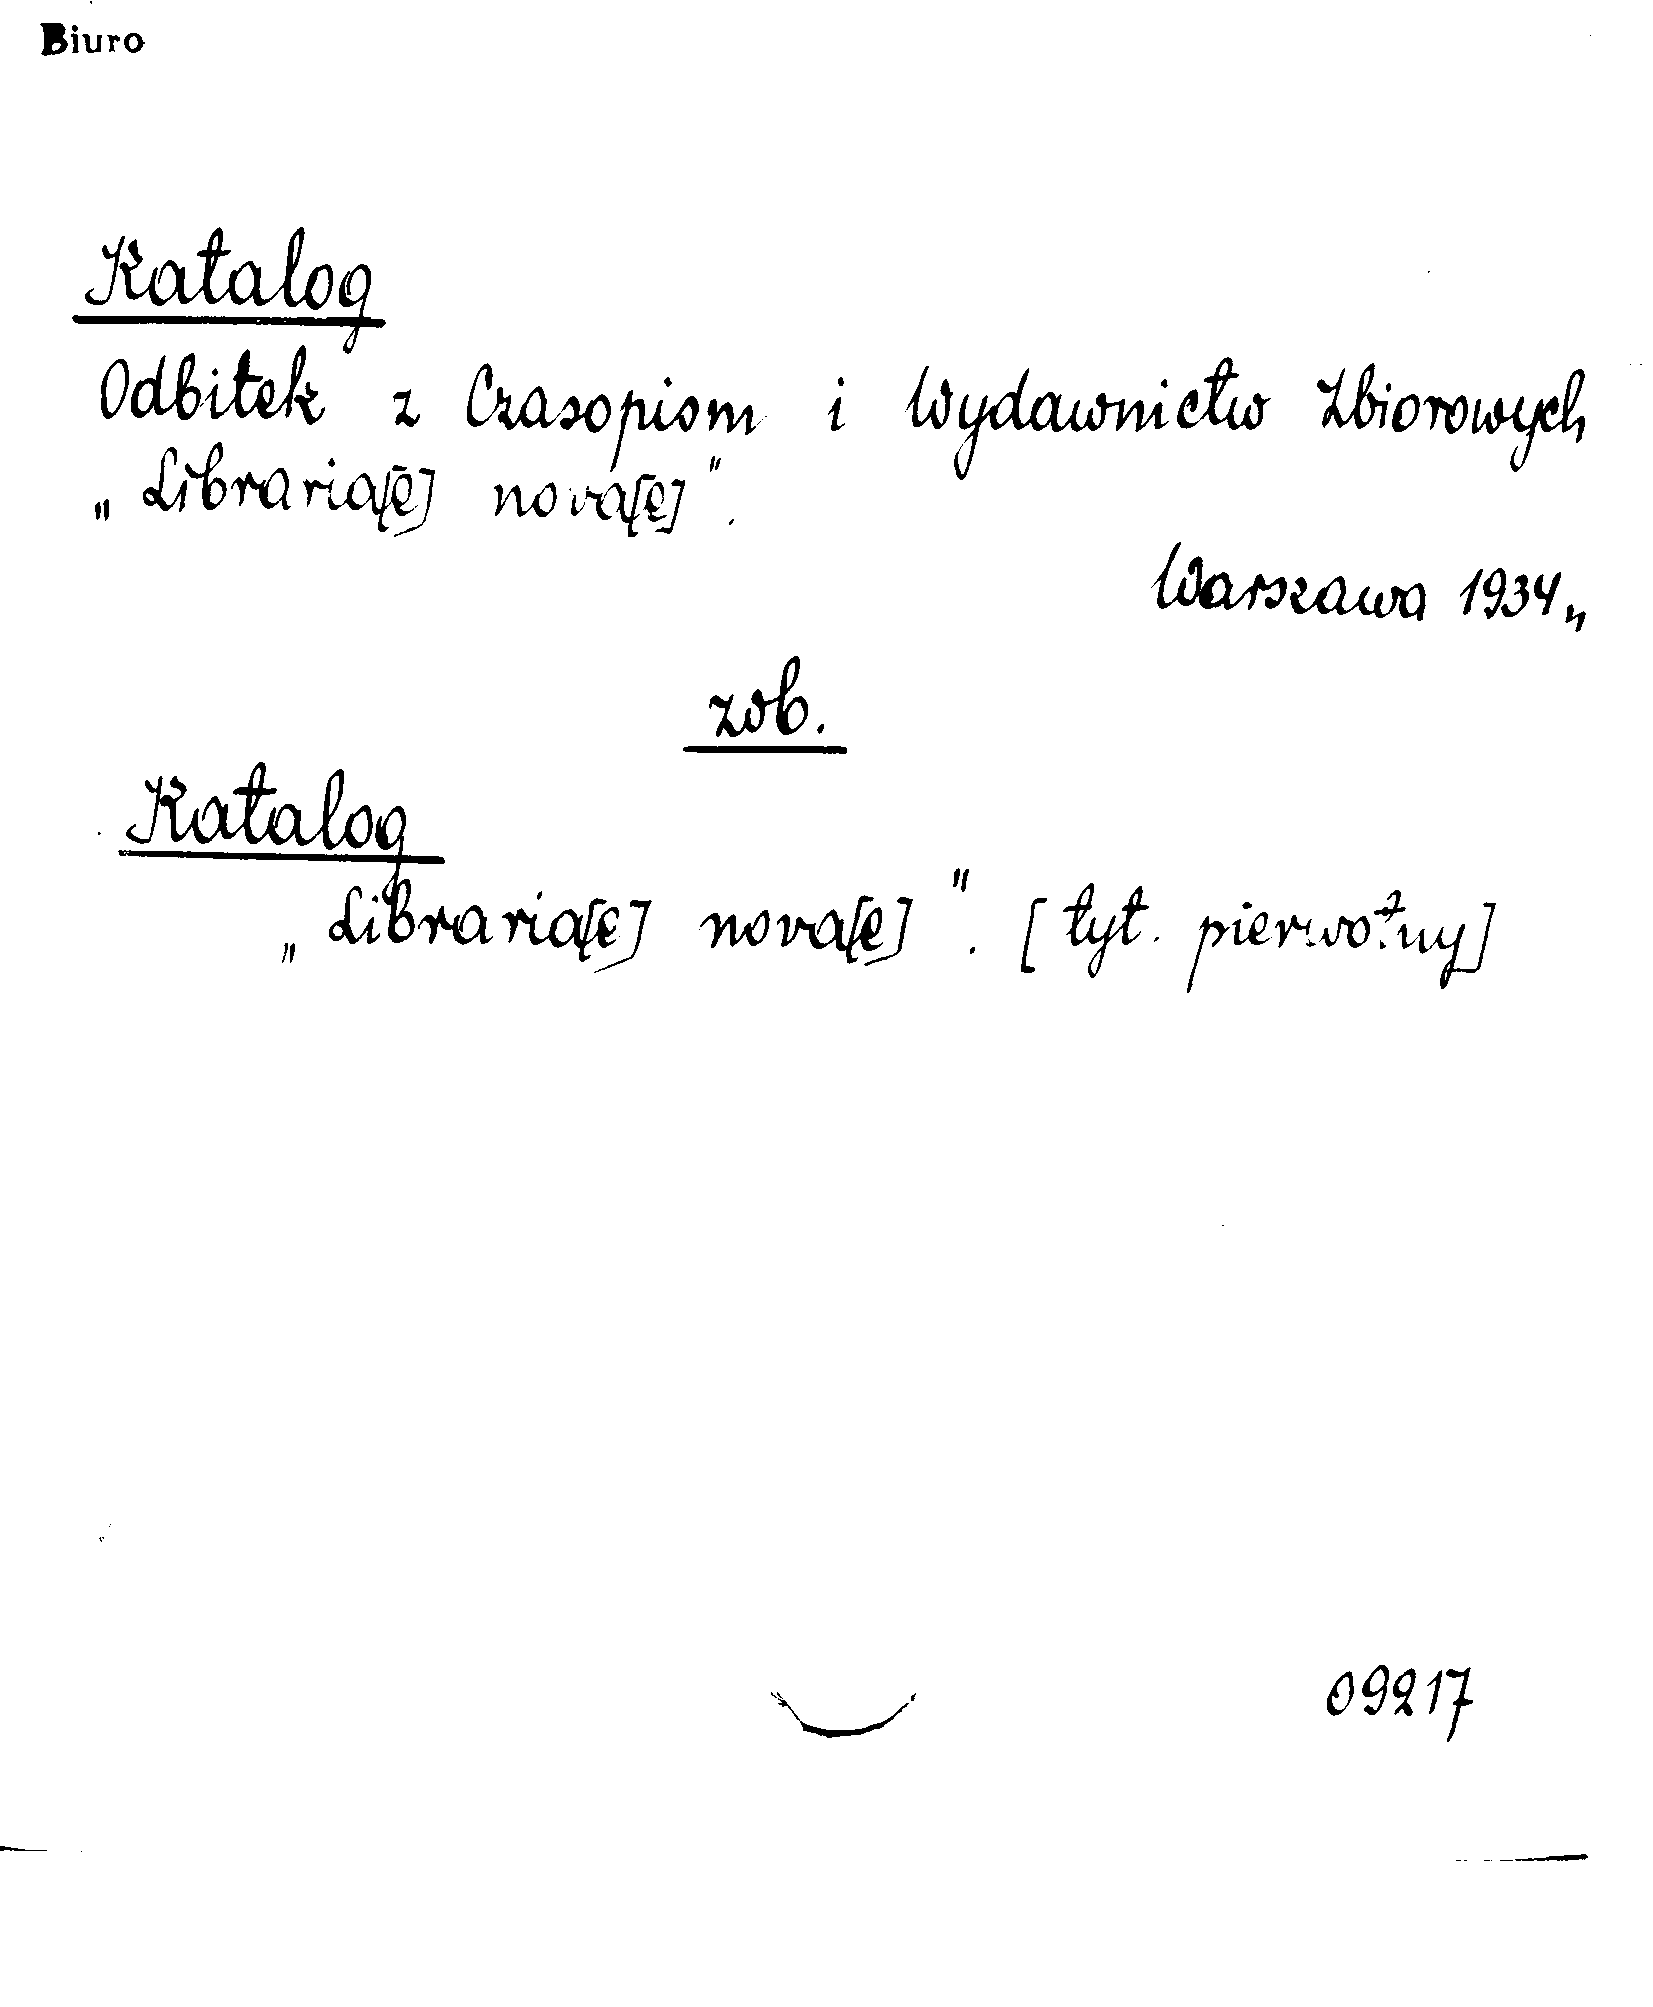 Biuro
Katalog
Odbitek z Czasopism i Wydawnictw Zbiorowych
„Libraria[e] nova[e]".
Warszawa 1934„
zob.
Katalog
„Libraria[e] nova[e]". [tyt. pierwotny]
09217